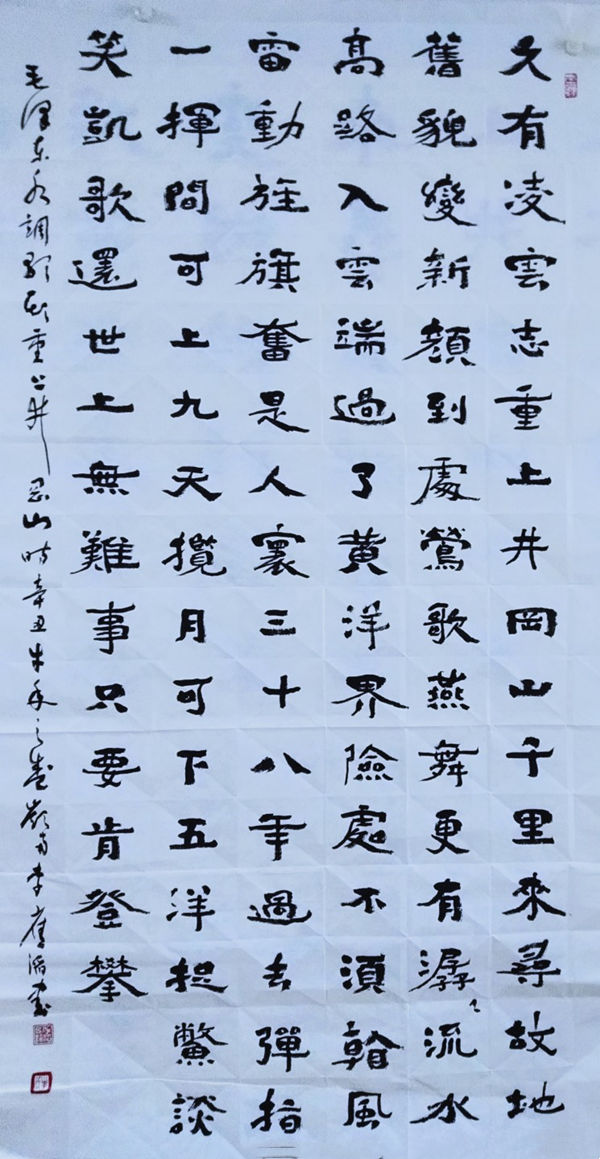 久有凌雲志重上井岡山千里來尋故地
舊貌變新顏到處鶯歌燕舞更有潺〻流水
高路入雲端過了黄洋界險處不須看風
雷動旌旗奮是人寰三十八年過去彈指
一揮間可上九天攬月可下五洋捉鱉談
笑凱歌還世上無難事只要肯登攀
毛澤东水調歌头重上井岡山時辛丑牛年之春嶺南李書